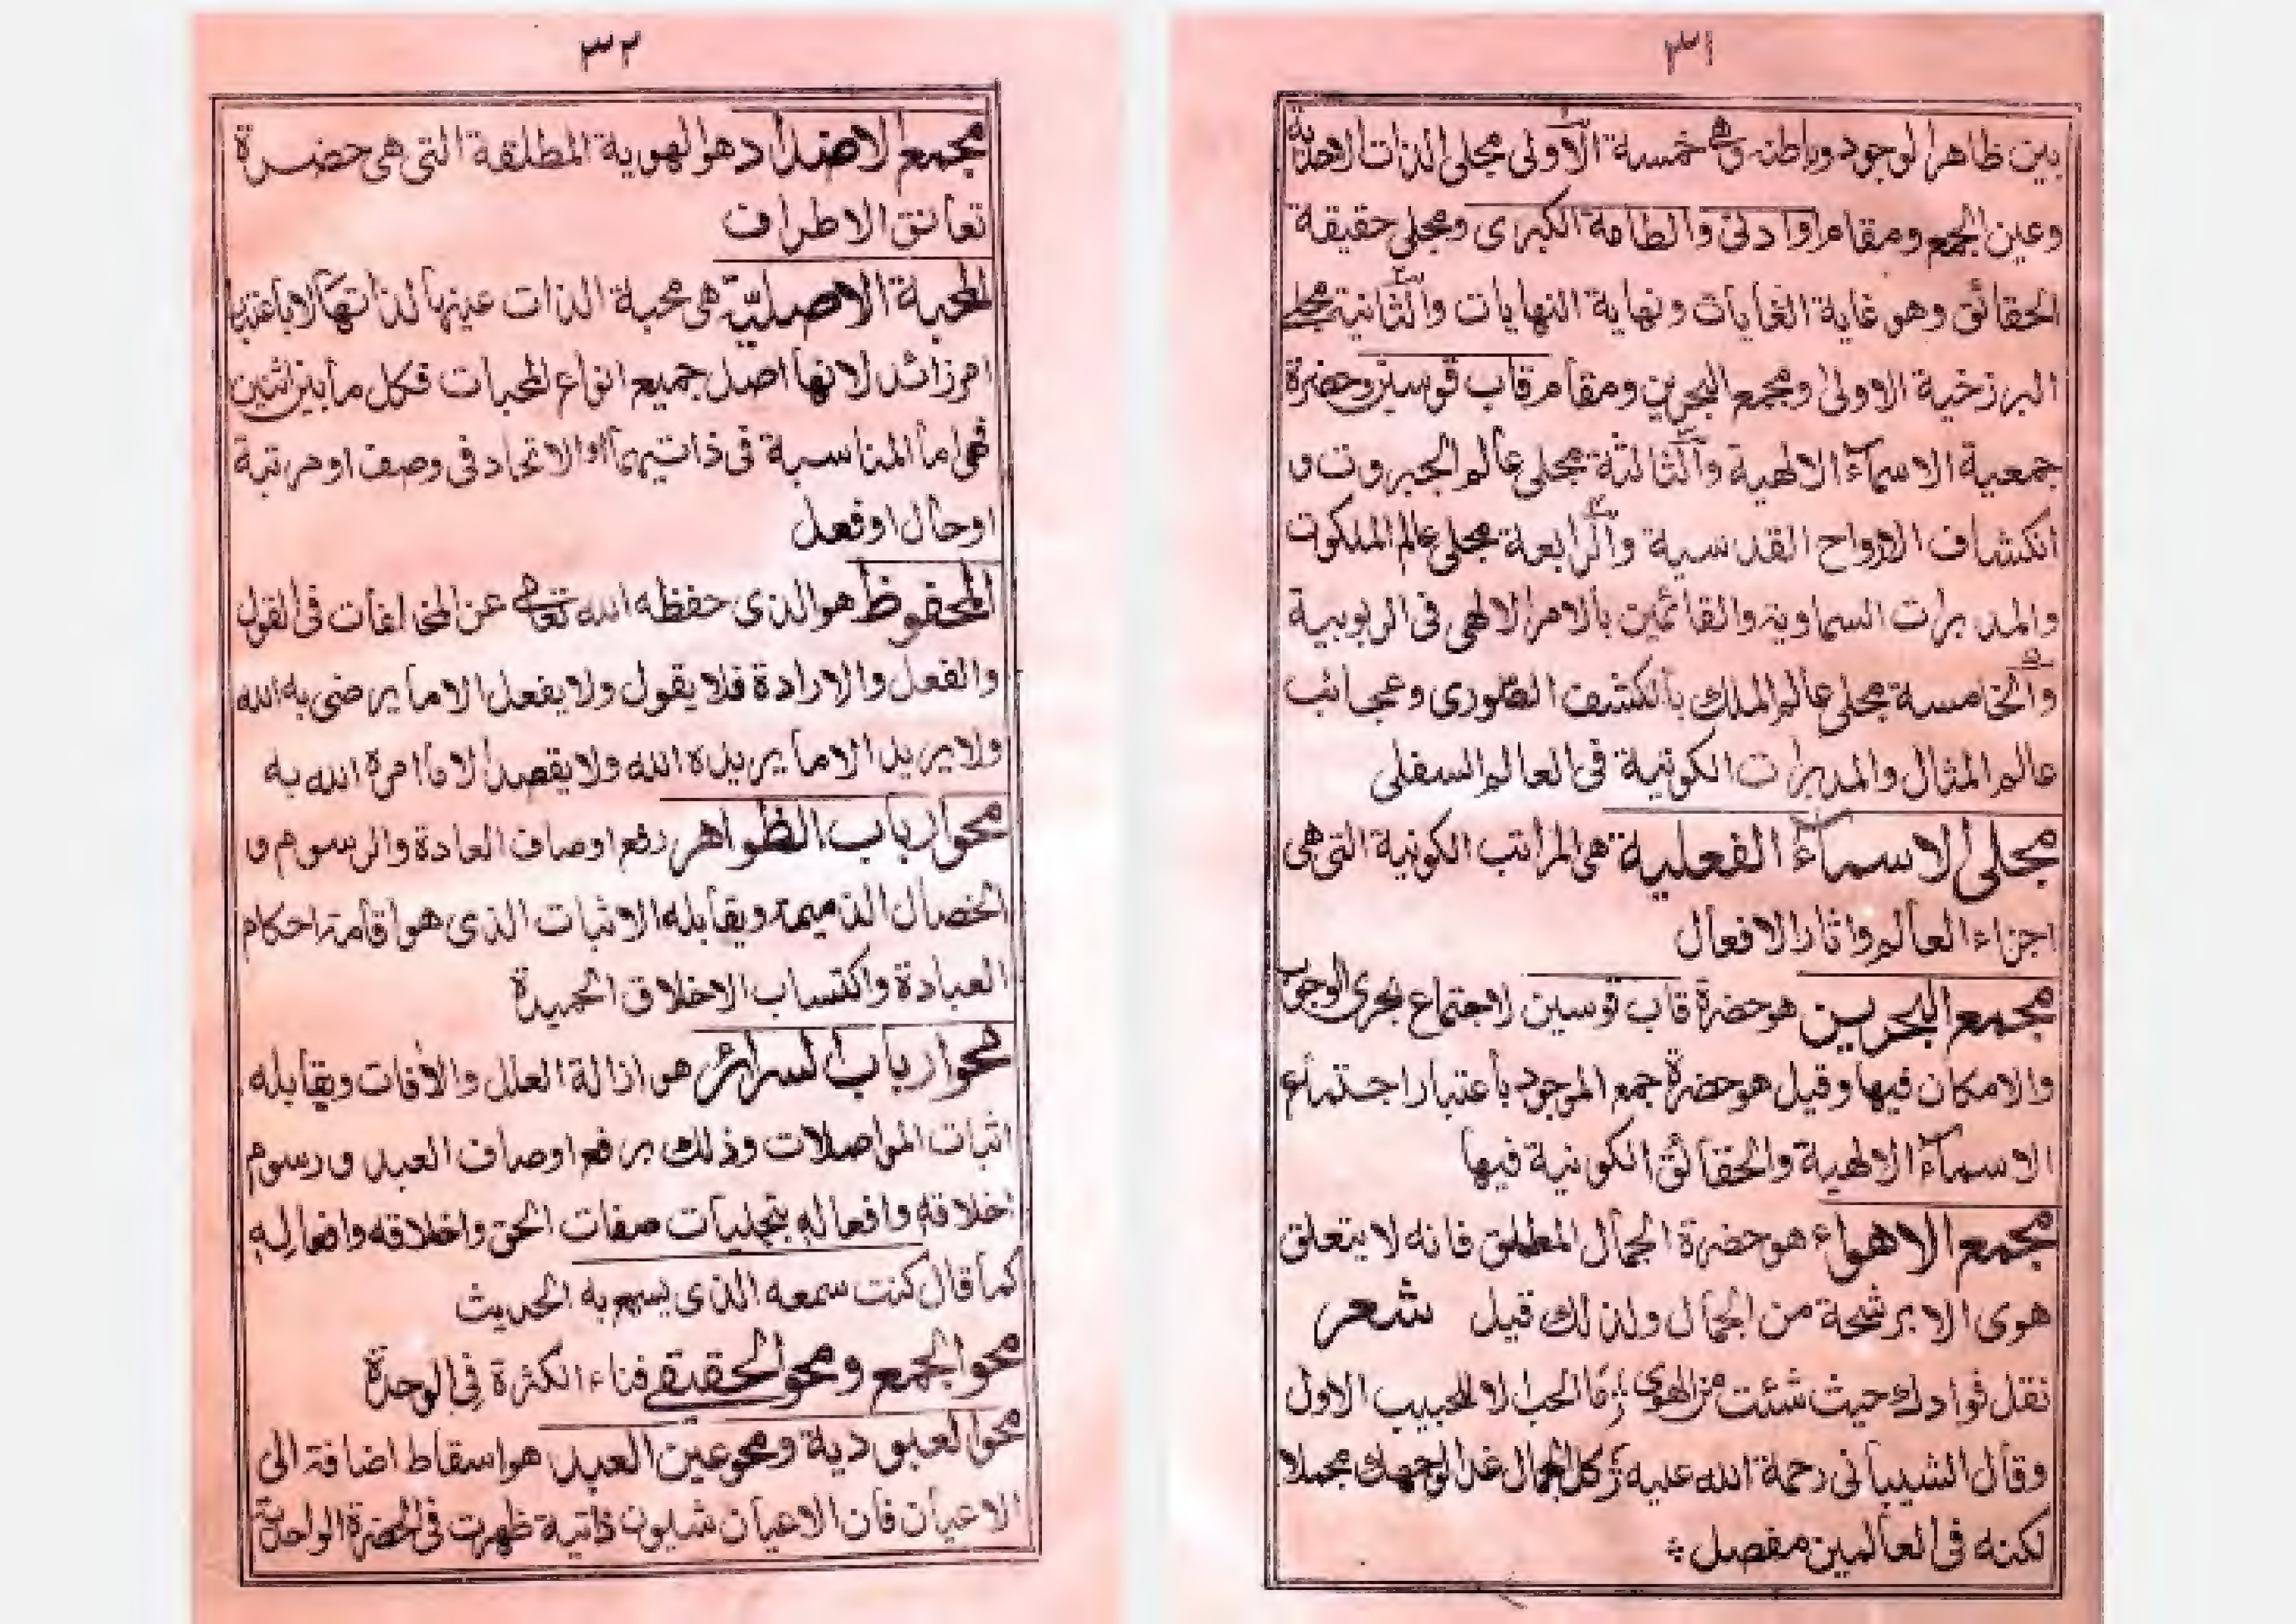 ٣١
بين ظاهر الوجود وباطنه وهى خمسة الاولى مجلى الذات الاحدية
وعين الجمع ومقام اوادنى والطامة الكبرى ومجلى حقيقة
الحقائق وهو غاية الغايات ونهاية النهايات والثانية مجلى
البرزخية الاولى ومجمع البحرين ومقام قاب قوسين وحضرة
جمعية الاسمآء الالهية والثالثة مجلى عالم الجبروت و
انكشاف الارواح القدسية والرابعة مجلى عالم الملكوت
والمدبرات السماوية والقائمين بالامر الالهى فى الربوبية
والخامسة مجلى عالم الملك بالكشف الصورى وعجائب
عالم المثال والمدبرات الكونية فى العالم السفلى
مجلى الاسمآء الفعلية هى المراتب الكونية التى هى
اجزاء العالم واثار الافعال
مجمع البحرين هو حضرة قاب قوسين لاجتماع بحرى الوجوب
والامكان فيها وقيل هو حضرة جمع الوجود باعتبار اجتماع
الاسمآء الالهية والحقائق الكونية فيها
مجمع الاهواء هو حضرة الجمال المطلق فانه لا يتعلق
هوى الا برشحة من الجمال ولذلك قيل شعر
نقل فوادك حيث شئت من الهوى ؛ ما الحب الا للحبيب الاول
وقال الشيبانى رحمة الله عليه ؛ كل الجمال غدا لوجهك مجملا
لكنه فى العالمين مفصل ؞
٣٢
مجمع الاضداد هو الهوية المطلقة التى هى حضرة
تعانق الاطراف
المحبة الاصليّة هى محبة الذات عينها لذاتها لا باعتبار
امر زائد لانها اصل جميع انواع المحبات فكل ما بين اثنين
فهى اما المناسبة فى ذاتيهما او الاتحاد فى وصف او مرتبة
او حال او فعل
المحفوظ هو الذى حفظه الله تعالى عن المخالفات فى القول
والفعل والارادة فلا يقول ولا يفعل الا ما يرضى به الله
ولا يريد الا ما يريده الله ولا يقصد الا ما امره الله به
محو ارباب الظواهر رفع اوصاف العادة والرسوم و
الخصال الذميمة ويقابله الاثبات الذى هو اقامة احكام
العبادة واكتساب الاخلاق الحميدة
محو ارباب السرائر هو ازالة العلل والافات ويقابله
اثبات المواصلات وذلك برفع اوصاف العبد ورسوم
اخلاقه وافعاله بتجليات صفات الحق واخلاقه وافعاله
كما قال كنت سمعه الذى يسمع به الحديث
محو الجمع ومحو الحقيقى فناء الكثرة فى الوحدة
محو العبودية ومحو عين العبد هو اسقاط اضافة الى
الاعيان فان الاعيان شئون ذاتية ظهرت فى الحضرة الواحدية